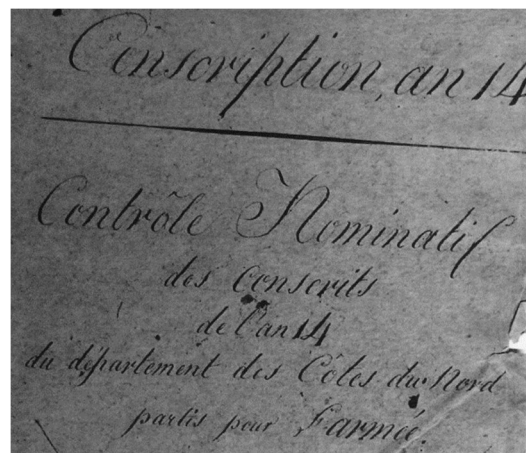 Conscription, an 14
Contrôle Nominatif
des Conscrits
de l'an 14
du département des Côtes du Nord
partis pour l'armée.